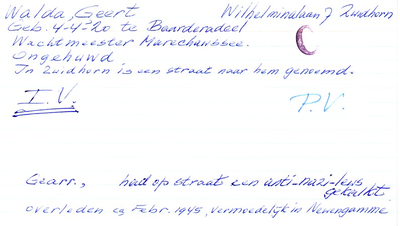 Walda, Geert Wilhelminalaan 7 Zuidhorn
Geb. 4-4-'20 te Baarderadeel
Wachtmeester Marechaussee.
Ongehuwd.
In Zuidhorn is een straat naar hem genoemd.
I.V. P.V.
Gearr., had op straat een anti-nazi-leus
gekalkt
overleden eg Febr. 1945, vermoedelijk in Neuengamme